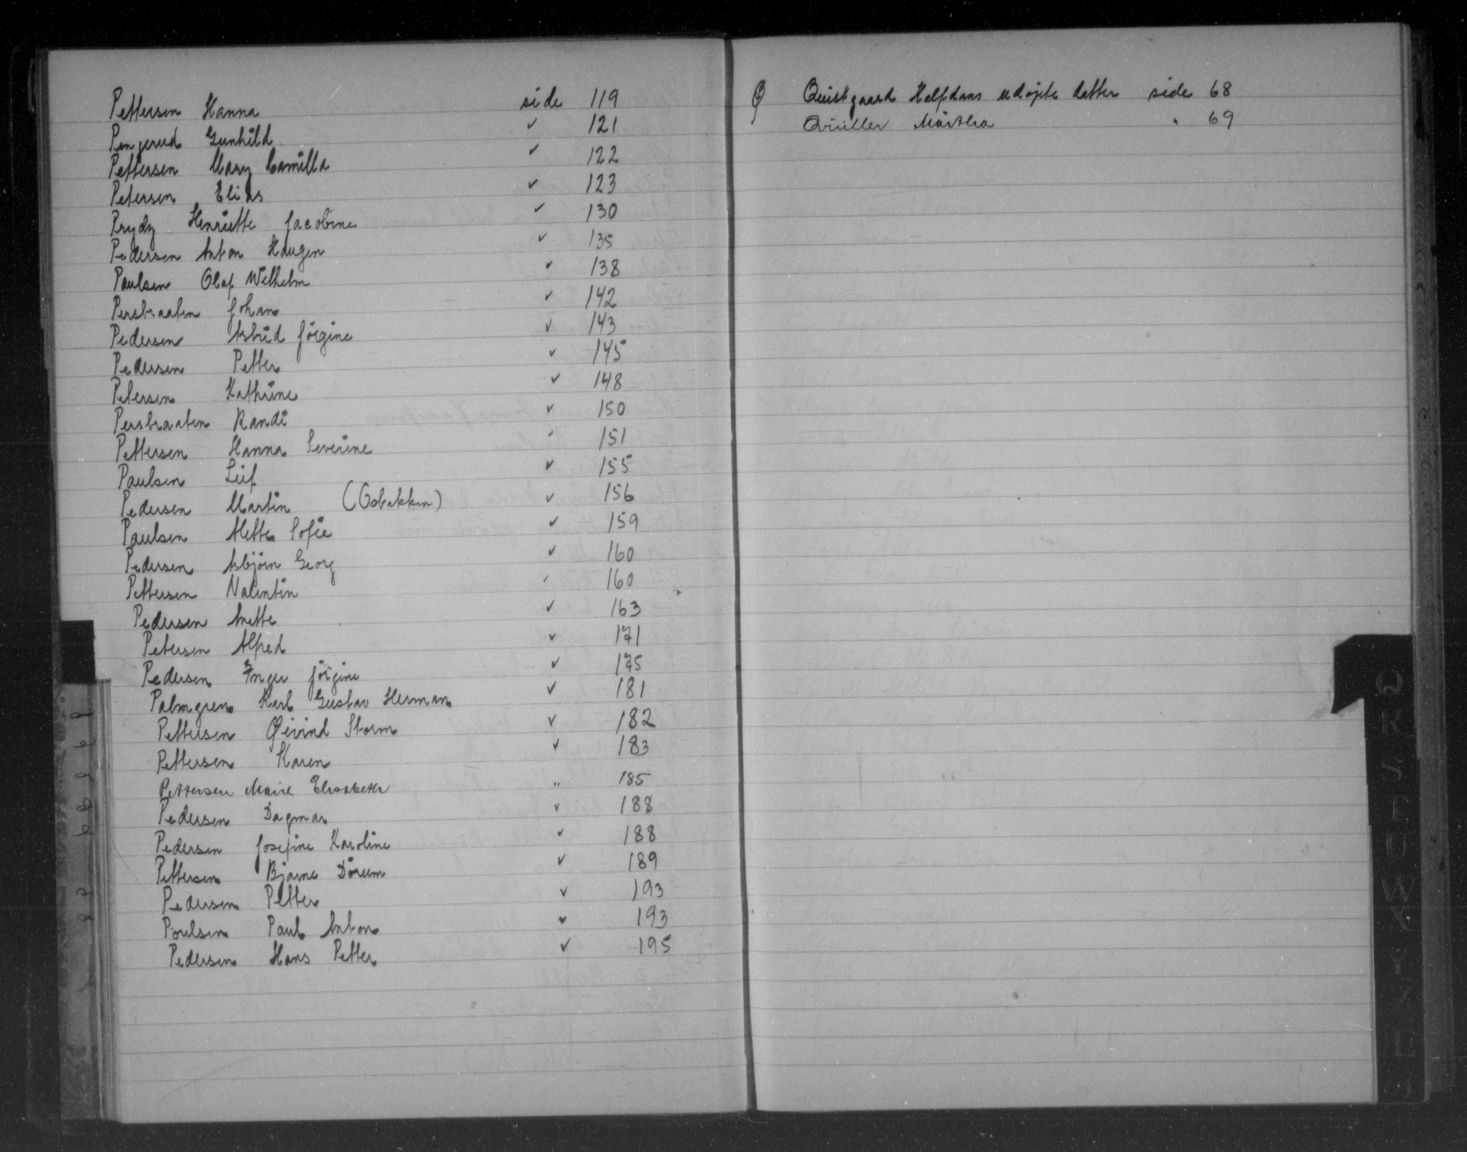 Pettersen Hanna side 119
Penjerud Gunhild ✓ 121
Pettersen Mary Camilla ✓ 122
Petersen Elias ✓ 123
Prydz Henriette Jacobine ✓ 130
Pedersen Anton Haugen ✓ 135
Paulsen Olaf Wilhelm ✓ 138
Persbraaten Johan ✓ 142
Pedersen Astrid Jörgine ✓ 143
Pedersen Petter ✓ 145
Petersen Kathrine ✓ 148
Persbraaten Randi ✓ 150
Pettersen Hanna Severine ✓ 151
Paulsen Leif ✓ 155
Pedersen Martin (Osbakken) ✓ 156
Paulsen Alette Sofie ✓ 159
Pedersen Asbjörn Georg ✓ 160
Pettersen Valentin ✓ 160
Pedersen Anette ✓ 163
Petersen Alfred ✓ 171
Pedersen Inger Jörgine ✓ 175
Palmgren Karl Gustav Herman ✓ 181
Pettersen Øivind Storm ✓ 182
Pettersen Karen ✓ 183
Pettersen Marie Elisabeth " 185
Pedersen Dagmar ✓ 188
Pedersen Josefine Karoline ✓ 188
Pettersen Bjarne Dörum ✓ 189
Pedersen Petter ✓ 193
Poulsen Paul Anton ✓ 193
Pedersen Hans Petter ✓ 195
Q Quistgaard Halfdans udøpte datter side 68
Qviller Martha " 69
Q
R
S
T
U
W
X
Y
Z